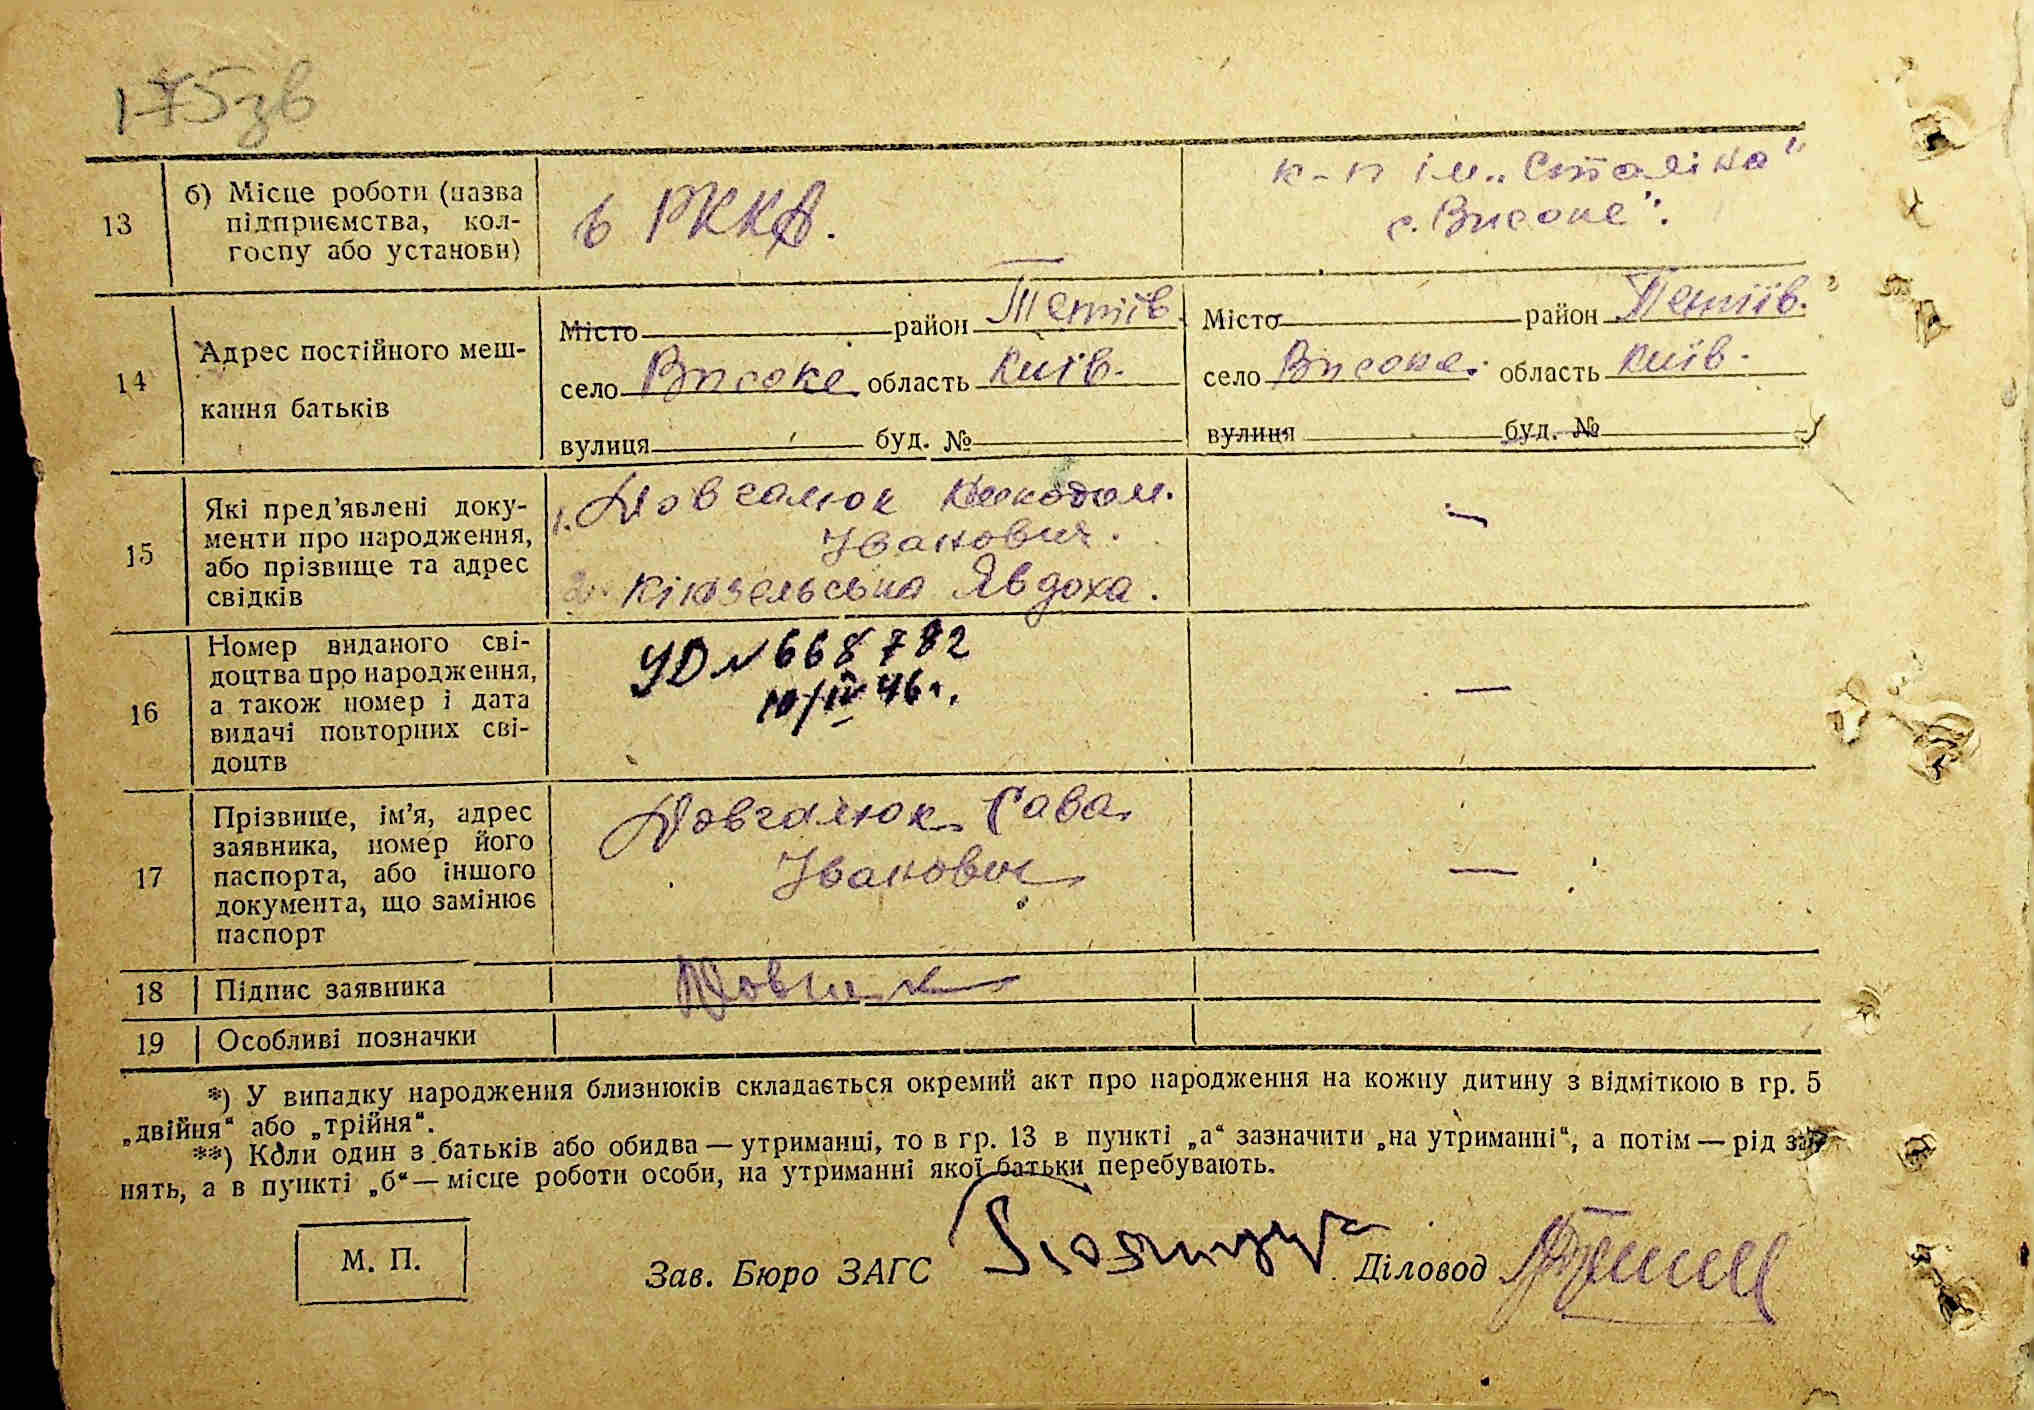 175зв
13
б) Місце роботи (назва
підприємства, кол-
госпу або установи)
в РККА.
к-п ім. „Сталіна"
с. Високе".
14
Адрес постійного меш-
кання батьків
Місто район Тетіїв.
село Високе область Київ.
вулиця буд. №
Місто район Тетіїв.
село Високе. область Київ.
вулиця буд. №
15
Які пред’явлені доку-
менти про народження,
або прізвище та адрес
свідків
1. Довгалюк
Іванович.
2. Кінзельська Явдоха.
—
16
Номер виданого сві-
доцтва про народження,
а також номер і дата
видачі повторних сві-
доцтв
УД № 668782
10/IV 46 г.
—
17
Прізвище, ім’я, адрес
заявника, номер його
паспорта, або іншого
документа, що замінює
паспорт
Довгалюк Сава
Іванович
—
18
Підпис заявника
19
Особливі позначки
*) У випадку народження близнюків складається окремий акт про народження на кожну дитину з відміткою в гр. 5
„двійня“ або „трійня“.
**) Коли один з батьків або обидва — утриманці, то в гр. 13 в пункті „а“ зазначити „на утриманні“, а потім — рід за-
нять, а в пункті „б“ — місце роботи особи, на утриманні якої батьки перебувають.
М. П.
Зав. Бюро ЗАГС
Діловод